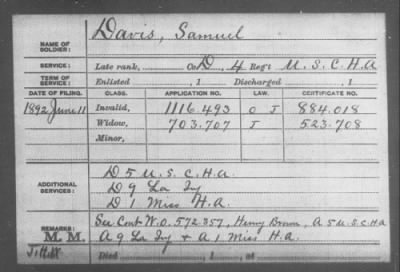 NAME OF SOLDIER: Davis, Samuel
SERVICE: Late rank, Co. D, 4 Reg't U.S.C.H.A
TERM OF SERVICE: Enlisted , 1 Discharged , 1
DATE OF FILING. CLASS. APPLICATION NO. LAW. CERTIFICATE NO.
1892 June 11 Invalid, 1116.493 O J 884.018
Widow, 703.707 J 523.708
Minor,
ADDITIONAL SERVICES: D 5 U.S.C.H.A.
D 9 La Inf
D 1 Miss H.A.
REMARKS: See Cont W.O. 572.357, Henry Brown, A 5 U.S.C.H.A
M. M. A 9 La Inf & A 1 Miss H.A.
Died , 1 , at